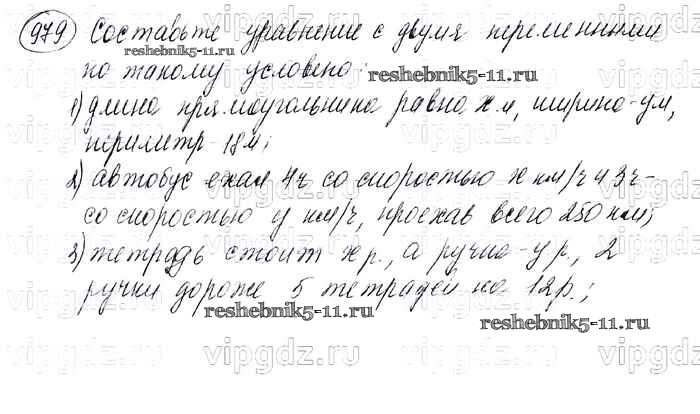 979 Составьте уравнение с двумя переменными
reshebnik5-11.ru
по такому условию:
reshebnik5-11.ru
1) длина прямоугольника равна x м, ширина - y м,
периметр - 18 м;
2) автобус ехал 4 ч со скоростью x км/ч и 3 ч -
со скоростью y км/ч, проехав всего 250 км;
3) тетрадь стоит x р., а ручка - y р., 2
ручки дороже 5 тетрадей на 12 р.;
reshebnik5-11.ru
reshebnik5-11.ru
vipgdz.ru vipgdz.ru vipgdz.ru vipgdz.ru